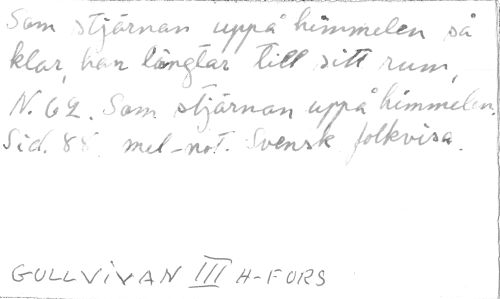 Som stjärnan uppå himmelen så
klar, han längtar till sitt rum,
N. 62. Som stjärnan uppå himmelen.
Sid. 88. mel-not. Svensk folkvisa.
GULLVIVAN III H-FORS